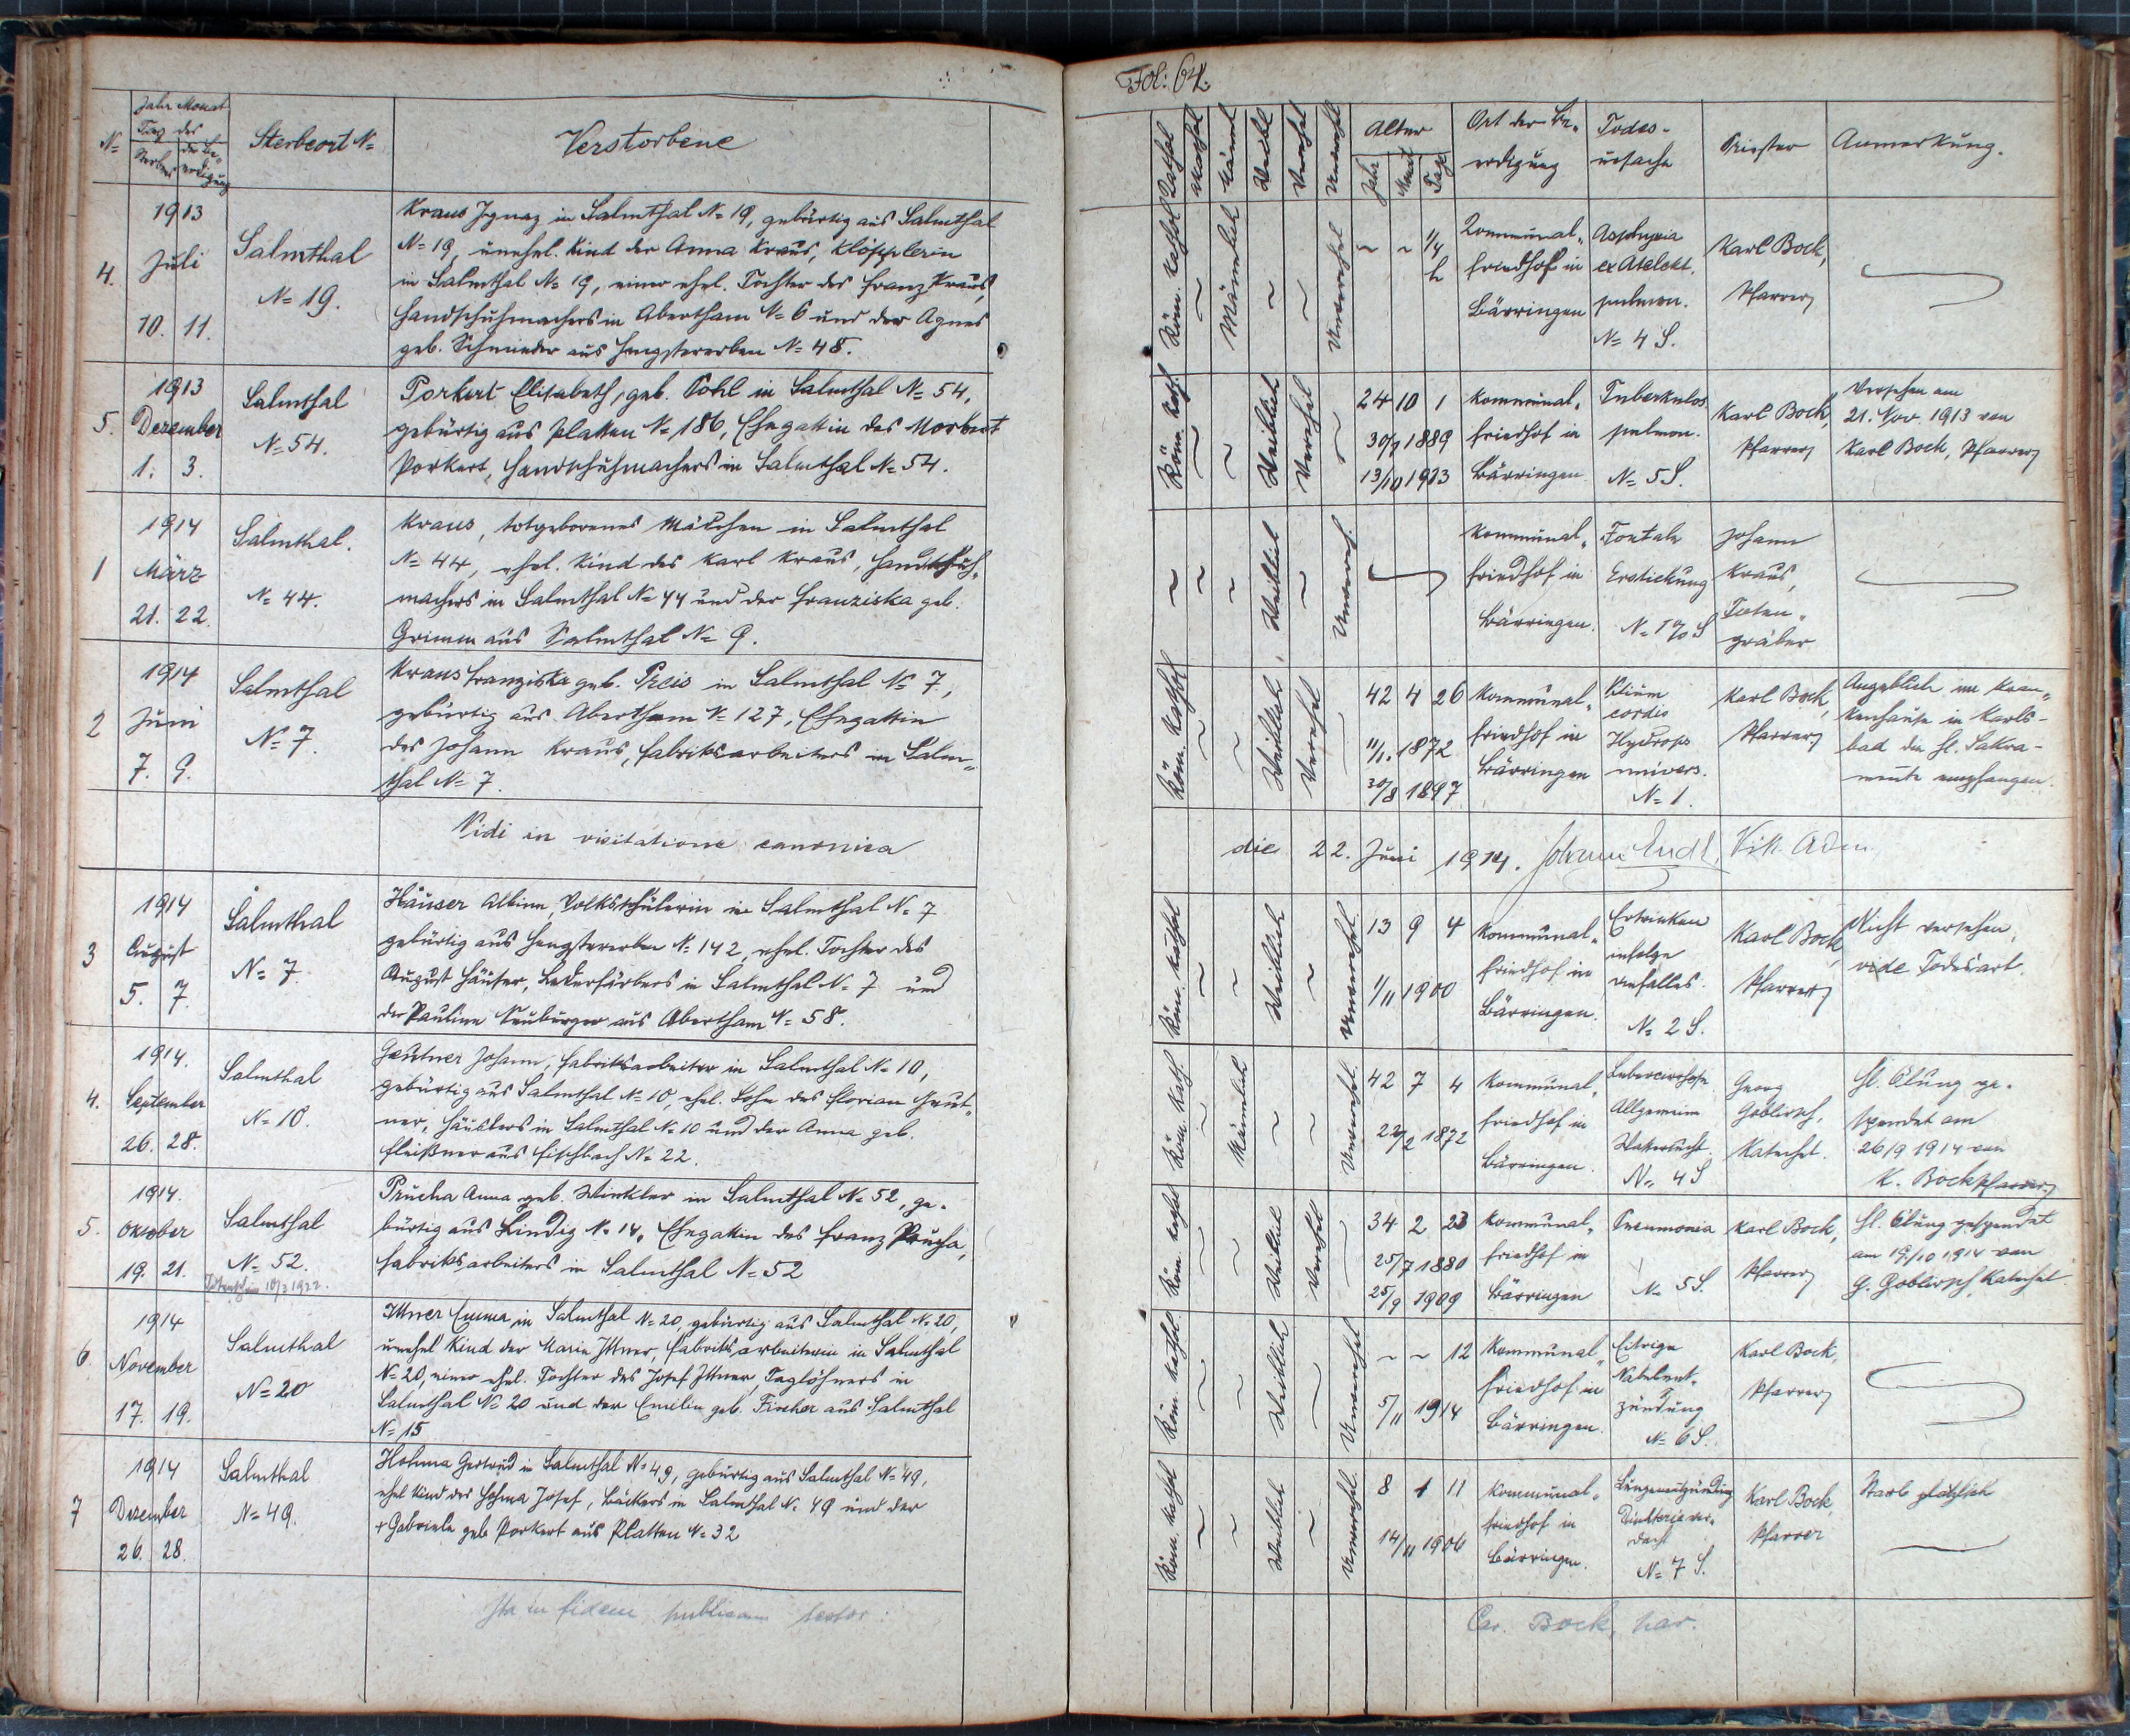 Fol: 64.
Nº
Jahr Monat
Tag des
Sterbens
der Be-
erdigung
Sterbeort Nº
Verstorbene
Kathol
Männl
Weibl
Verehel
Unverehl
Alter
Jahr
Monat
Tage
Ort der Be-
erdigung
Todes-
ursache
Priester
Anmerkung.
4.
1913
Juli
10. 11.
Salmthal
Nº 19.
Kraus Ignaz in Salmthal Nº 19, gebürtig aus Salmthal
Nº 19, unehel. Kind der Anna Kraus, Klöpplerin
in Salmthal Nº 19, einer ehel. Tochter des Franz Kraus,
Handschuhmachers in Abertham Nº 6 und der Agnes
geb. Schmieder aus Hengstererben Nº 48.
Röm. Kathol
~
Männlich
~
~
Unverehel
~ ~ 1/4
h
Kommunal-
friedhof in
Bärringen
Asphyxia
ex Atelekt.
pulmon.
Nº 4 S.
Karl Bock,
Pfarrer
5.
1913
Dezember
1. 3.
Salmthal
Nº 54.
Porkert Elisabeth, geb. Pohl in Salmthal Nº 54,
gebürtig aus Platten Nº 186, Ehegattin des Norbert
Porkert, Handschuhmachers in Salmthal Nº 54.
Röm. Kath.
~
~
Weiblich
Verehel
~
24 10 1
30/1 1889
13/10 1913
Kommunal-
friedhof in
Bärringen.
Tuberkulos
pulmon.
Nº 5 S.
Karl Bock,
Pfarrer
Versehen am
21. Nov. 1913 von
Karl Bock, Pfarrer
1
1914
März
21. 22.
Salmthal.
Nº 44.
Kraus, totgeborenes Mädchen in Salmthal
Nº 44, ehel. Kind des Karl Kraus, Handschuh-
machers in Salmthal Nº 44 und der Franziska geb.
Grimm aus Salmthal Nº 9.
~
~
~
Weiblich
~
Unvereh.
Kommunal-
friedhof in
Bärringen.
Foetale
Erstickung
Johann
Kraus,
Toten-
gräber
2
1914
Juni
7. 9.
Salmthal
Nº 7.
Kraus Franziska geb. Preis in Salmthal Nº 7,
gebürtig aus Abertham Nº 127, Ehegattin
des Johann Kraus, Fabriksarbeiters in Salm-
thal Nº 7.
Röm. Kathol
~
~
Weiblich
Verehel
42 4 26
11/1. 1872
30/8 1897
Kommunal-
friedhof in
Bärringen
Vitium
cordis
Hydrops
univers.
Nº 1.
Karl Bock,
Pfarrer
Angeblich im Kran-
kenhause in Karls-
bad die hl. Sakra-
mente empfangen.
Vidi in visitatione canonica
die 22. Juni 1914. Johann Endl, Vik. Adm.
3
1914
August
5. 7.
Salmthal
Nº 7.
Häuser Albine, Volksschülerin in Salmthal Nº 7
gebürtig aus Hengstererben Nº 142, ehel. Tochter des
August Häuser, Lederfärbers in Salmthal Nº 7 und
der Pauline Neuburger aus Abertham Nº 58.
Röm. Kathol
~
~
Weiblich
~
Unverehel.
13 9 4
1/11 1900
Kommunal-
friedhof in
Bärringen.
Ertrinken
infolge
Unfalles.
Nº 2 S.
Karl Bock,
Pfarrer
Nicht versehen,
vide Todesart.
4.
1914.
September
26. 28.
Salmthal
Nº 10.
Geutner Johann, Fabriksarbeiter in Salmthal Nº 10,
gebürtig aus Salmthal Nº 10, ehel. Sohn des Florian Geut-
ner, Häuslers in Salmthal Nº 10 und der Anna geb.
Fleißner aus Fischbach Nº 22.
Röm. Kath.
~
Männlich
~
~
Unverehel.
42 7 4
22/2 1872
Kommunal-
friedhof in
Bärringen.
Lebercirrhose
Allgemein
Wassersucht.
Nº 4 S
Georg
Goblirsch,
Katechet.
hl. Ölung ge-
spendet am
26/9 1914 von
K. Bock Pfarrer
5.
1914.
Oktober
19. 21.
Salmthal
Nº 52.
Totenschein 10/3 1922.
Prucha Anna geb. Winkler in Salmthal Nº 52, ge-
bürtig aus Lindig Nº 14, Ehegattin des Franz Prucha,
Fabriksarbeiters in Salmthal Nº 52
Röm. Kathol
~
~
Weiblich
Verehel
34 2 23
25/7 1880
25/9 1909
Kommunal-
friedhof in
Bärringen
Pneumonia
Nº 5 S.
Karl Bock,
Pfarrer
hl. Ölung gespendet
am 19./10 1914 von
G. Goblirsch, Katechet.
6.
1914
November
17. 19.
Salmthal
Nº 20
Ittner Emma in Salmthal Nº 20, gebürtig aus Salmthal Nº 20,
unehel Kind der Marie Ittner, Fabriksarbeiterin in Salmthal
Nº 20, einer ehel. Tochter des Josef Ittner, Taglöhners in
Salmthal Nº 20 und der Emilie geb. Fischer aus Salmthal
Nº 15
Röm. Kathol.
~
~
Weiblich
~
Unverehel
~ ~ 12
5/11 1914
Kommunal-
friedhof in
Bärringen.
Eitrige
Nabelent-
zündung
Nº 6 S.
Karl Bock,
Pfarrer
7
1914
Dezember
26. 28.
Salmthal
Nº 49.
Hohma Gertrud in Salmthal Nº 49, gebürtig aus Salmthal Nº 49,
ehel Kind des Hohma Josef, Bäckers in Salmthal Nº 49 und der
+ Gabriele geb. Porkert aus Platten Nº 32
Röm. Kathol
~
~
Weiblich
~
Unverehl.
8 1 11
14/11 1906
Kommunal-
friedhof in
Bärringen.
Lungenentzündung
Diphterie ver-
dacht
Nº 7 S.
Karl Bock,
Pfarrer
Starb plötzlich
Ita in fidem publicam testor:
Car. Bock, par.